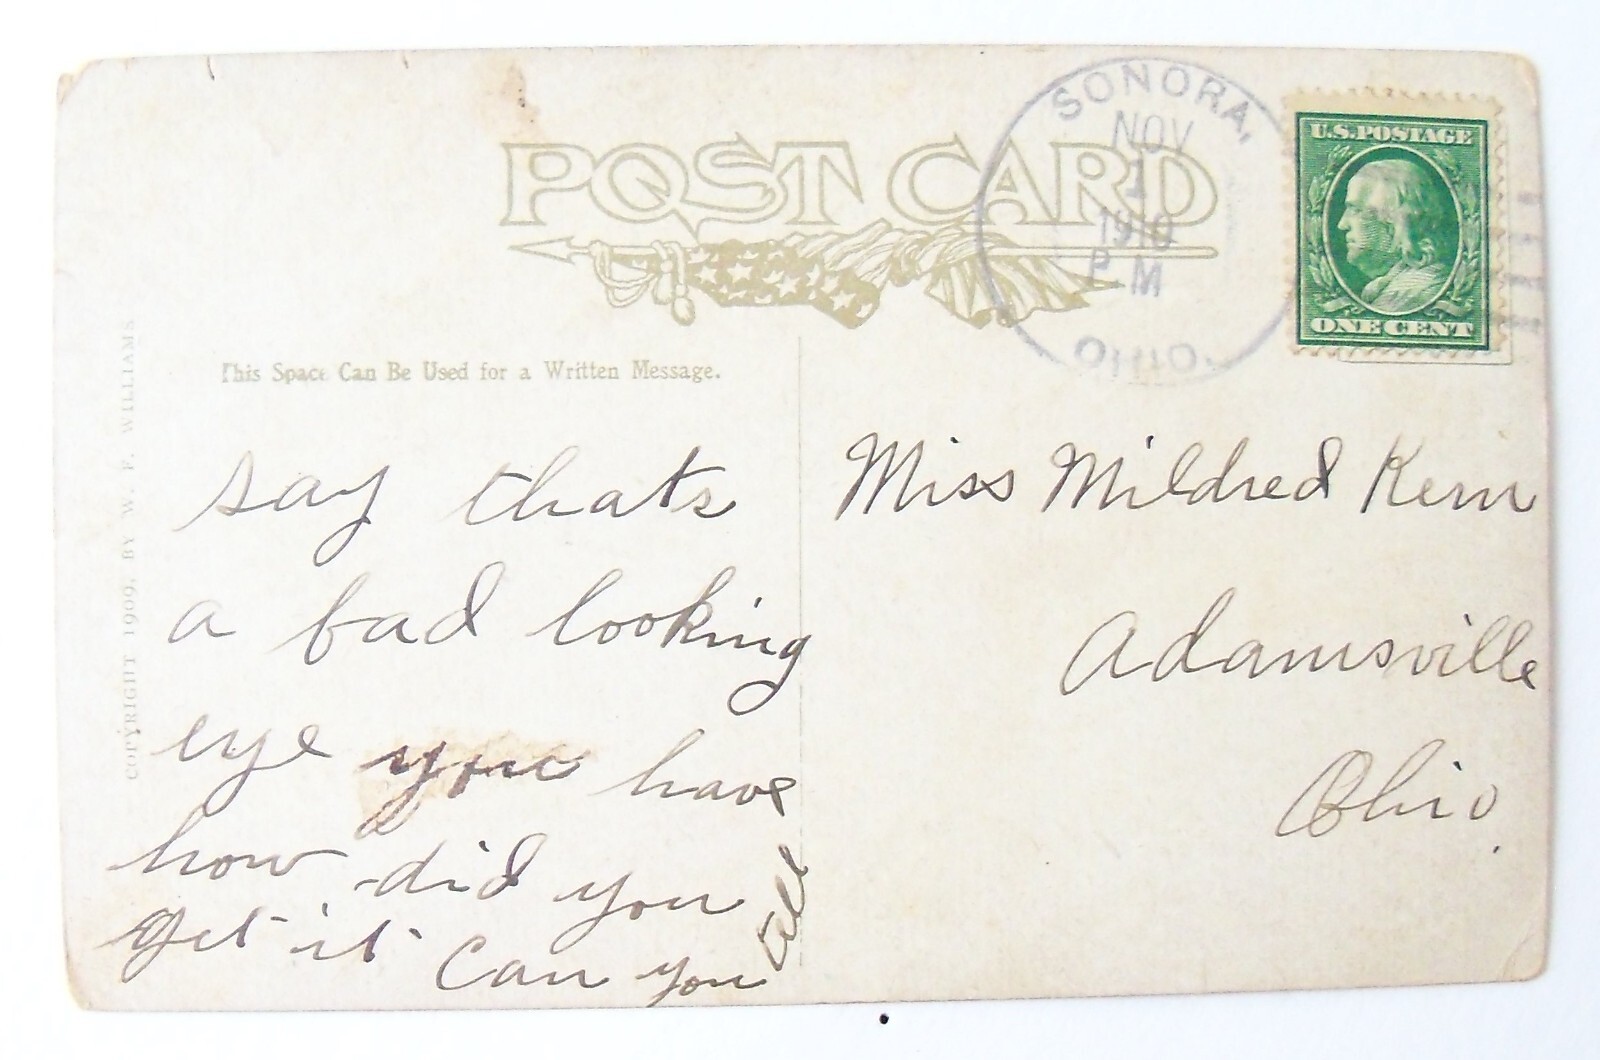 POST CARD
SONORA,
NOV
1
1910
P M
OHIO.
U.S. POSTAGE
ONE CENT
This Space Can Be Used for a Written Message.
COPYRIGHT 1909, BY W. F. WILLIAMS
say thats
a bad looking
eye you have
how did you
get it can you
tell
Miss Mildred Kern
Adamsville
Ohio.